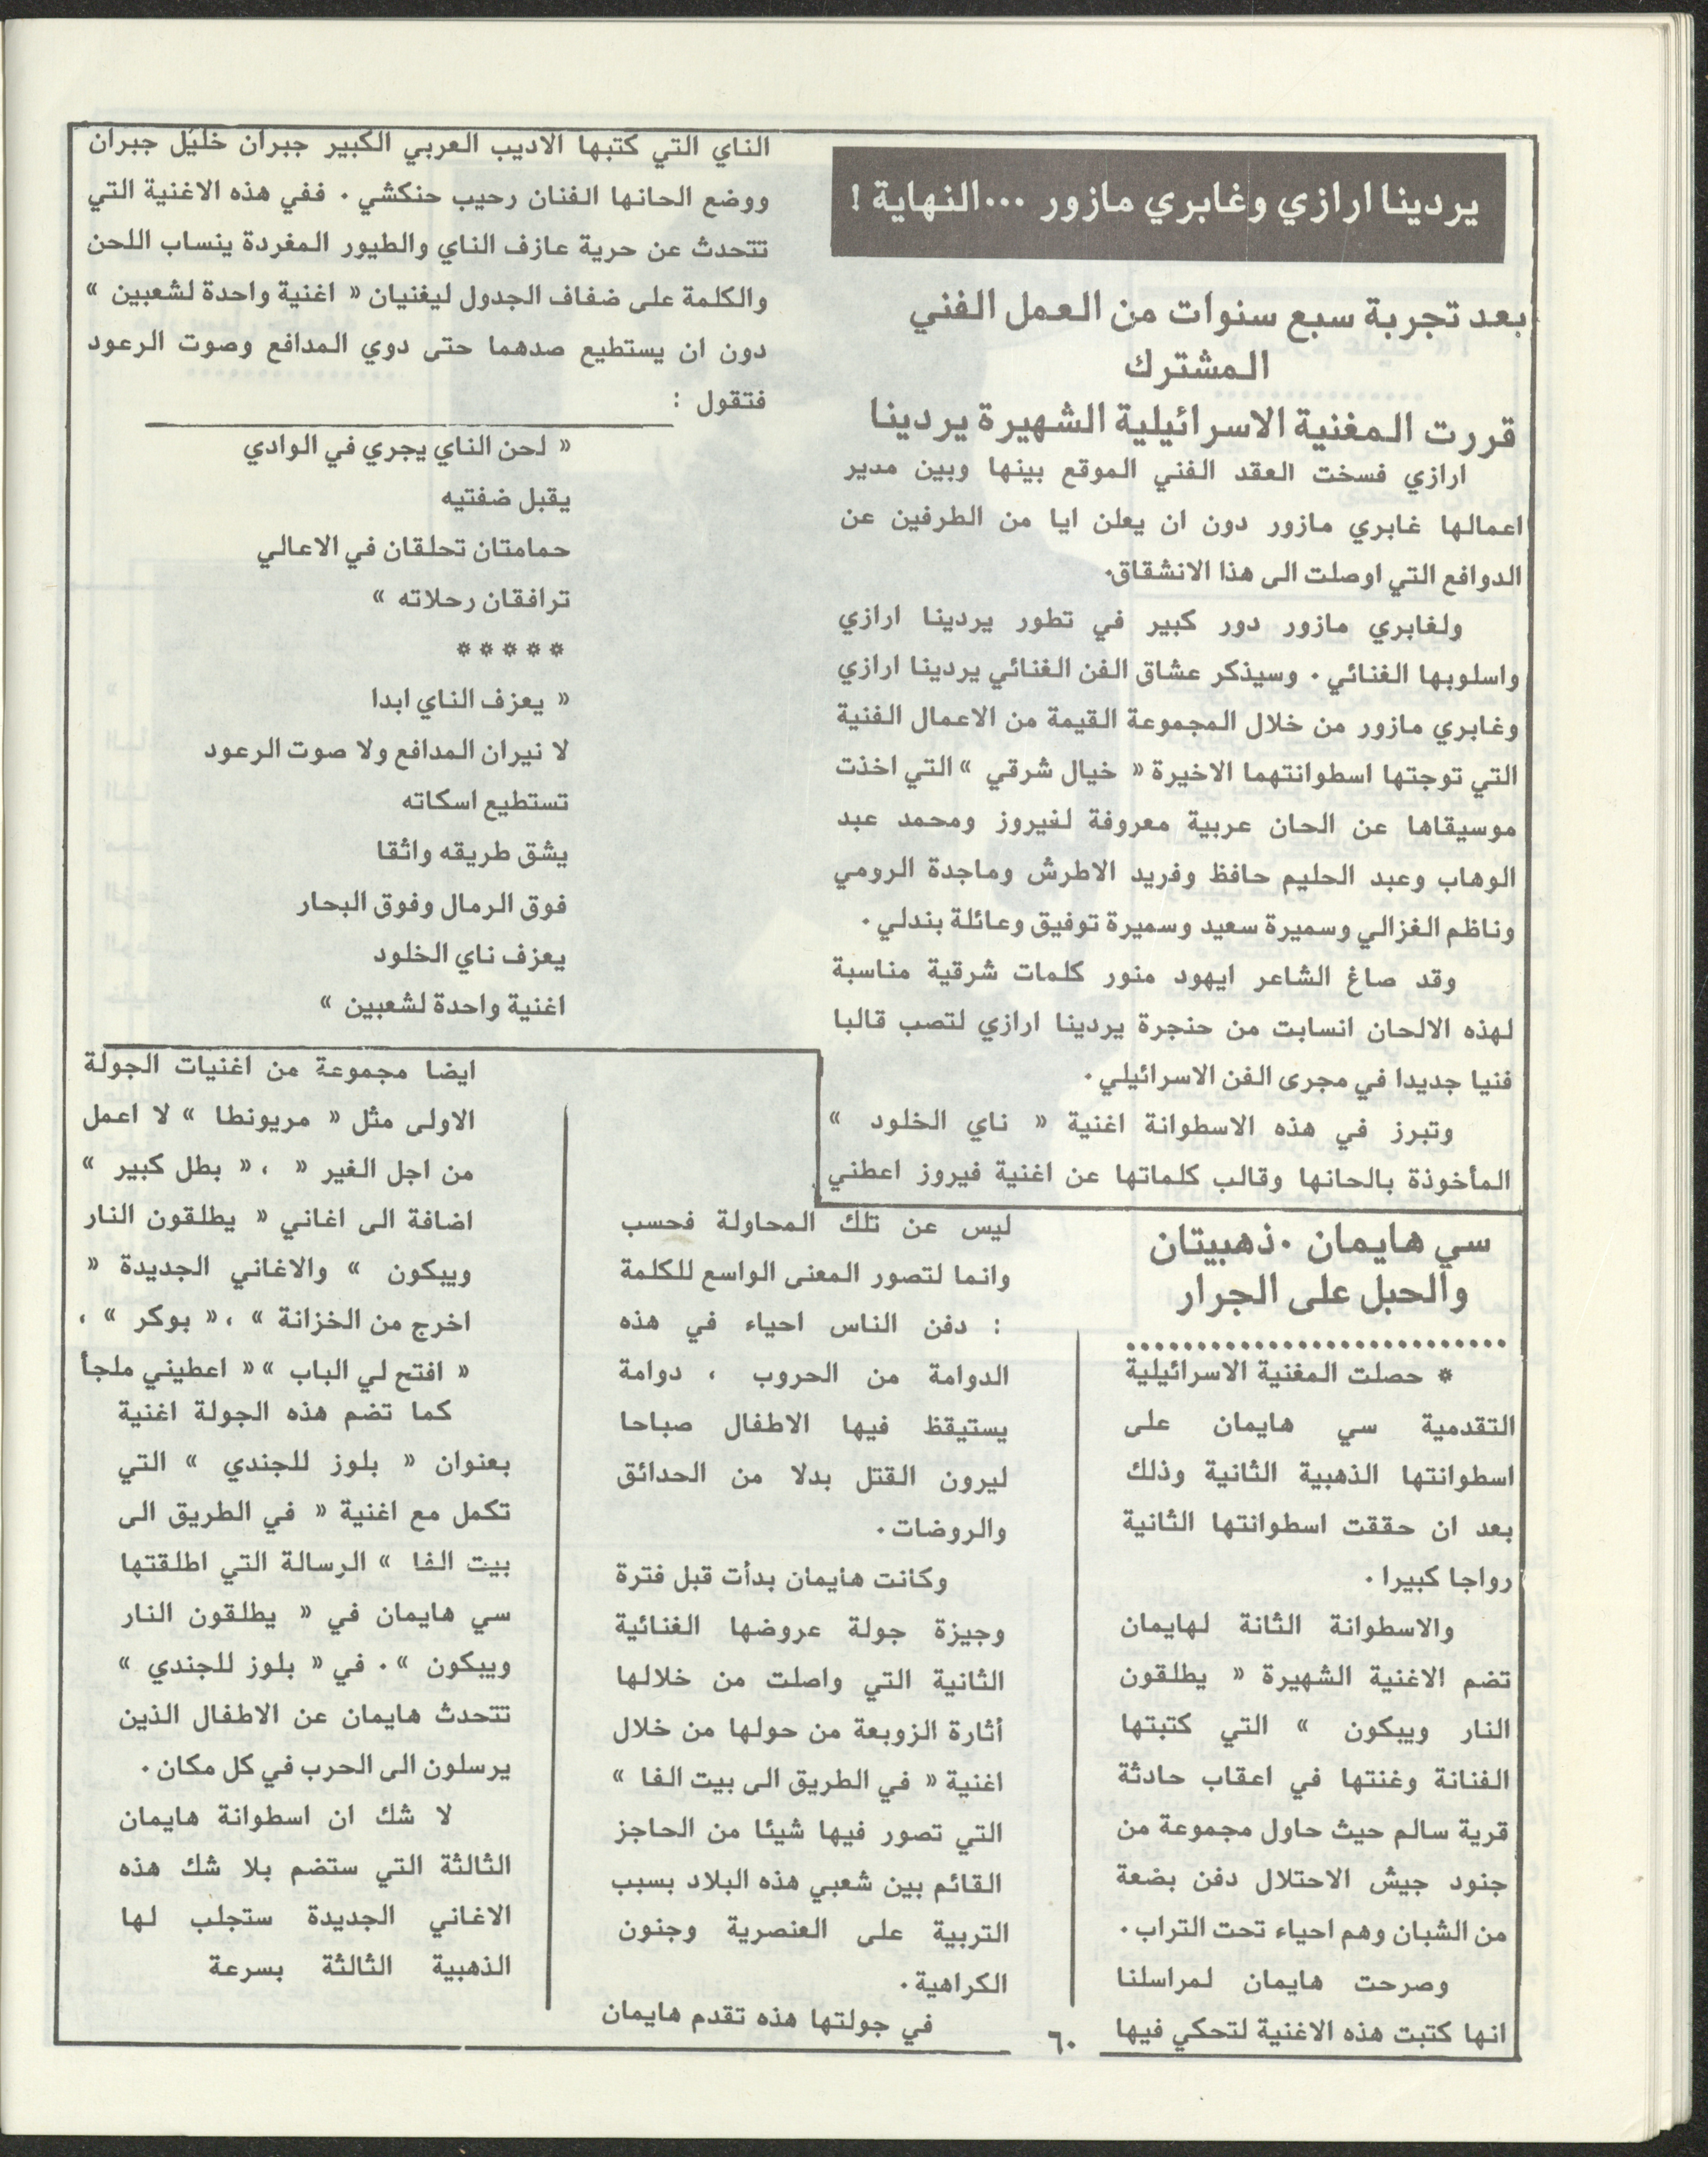 يردينا ارازي وغابري مازور ...النهاية !
بعد تجربة سبع سنوات من العمل الفني
المشترك
قررت المغنية الاسرائيلية الشهيرة يردينا
ارازي فسخت العقد الفني الموقع بينها وبين مدير
اعمالها غابري مازور دون ان يعلن ايا من الطرفين عن
الدوافع التي اوصلت الى هذا الانشقاق.
ولغابري مازور دور كبير في تطور يردينا ارازي
واسلوبها الغنائي . وسيذكر عشاق الفن الغنائي يردينا ارازي
وغابري مازور من خلال المجموعة القيمة من الاعمال الفنية
التي توجتها اسطوانتهما الاخيرة « خيال شرقي » التي اخذت
موسيقاها عن الحان عربية معروفة لفيروز ومحمد عبد
الوهاب وعبد الحليم حافظ وفريد الاطرش وماجدة الرومي
وناظم الغزالي وسميرة سعيد وسميرة توفيق وعائلة بندلي .
وقد صاغ الشاعر ايهود منور كلمات شرقية مناسبة
لهذه الالحان انسابت من حنجرة يردينا ارازي لتصب قالبا
فنيا جديدا في مجرى الفن الاسرائيلي .
وتبرز في هذه الاسطوانة اغنية « ناي الخلود »
المأخوذة بالحانها وقالب كلماتها عن اغنية فيروز اعطني
الناي التي كتبها الاديب العربي الكبير جبران خليل جبران
ووضع الحانها الفنان رحيب حنكشي . ففي هذه الاغنية التي
تتحدث عن حرية عازف الناي والطيور المغردة ينساب اللحن
والكلمة على ضفاف الجدول ليغنيان « اغنية واحدة لشعبين »
دون ان يستطيع صدهما حتى دوي المدافع وصوت الرعود
فتقول :
« لحن الناي يجري في الوادي
يقبل ضفتيه
حمامتان تحلقان في الاعالي
ترافقان رحلاته »
*****
« يعزف الناي ابدا
لا نيران المدافع ولا صوت الرعود
تستطيع اسكاته
يشق طريقه واثقا
فوق الرمال وفوق البحار
يعزف ناي الخلود
اغنية واحدة لشعبين »
سي هايمان .ذهبيتان
والحبل على الجرار
..........................
* حصلت المغنية الاسرائيلية
التقدمية سي هايمان على
اسطوانتها الذهبية الثانية وذلك
بعد ان حققت اسطوانتها الثانية
رواجا كبيرا .
والاسطوانة الثانة لهايمان
تضم الاغنية الشهيرة « يطلقون
النار ويبكون » التي كتبتها
الفنانة وغنتها في اعقاب حادثة
قرية سالم حيث حاول مجموعة من
جنود جيش الاحتلال دفن بضعة
من الشبان وهم احياء تحت التراب .
وصرحت هايمان لمراسلنا
انها كتبت هذه الاغنية لتحكي فيها
ليس عن تلك المحاولة فحسب
وانما لتصور المعنى الواسع للكلمة
: دفن الناس احياء في هذه
الدوامة من الحروب ، دوامة
يستيقظ فيها الاطفال صباحا
ليرون القتل بدلا من الحدائق
والروضات .
وكانت هايمان بدأت قبل فترة
وجيزة جولة عروضها الغنائية
الثانية التي واصلت من خلالها
أثارة الزوبعة من حولها من خلال
اغنية « في الطريق الى بيت الفا »
التي تصور فيها شيئا من الحاجز
القائم بين شعبي هذه البلاد بسبب
التربية على العنصرية وجنون
الكراهية .
في جولتها هذه تقدم هايمان
ايضا مجموعة من اغنيات الجولة
الاولى مثل « مريونطا » لا اعمل
من اجل الغير « ، « بطل كبير »
اضافة الى اغاني « يطلقون النار
ويبكون » والاغاني الجديدة «
اخرج من الخزانة » ، « بوكر » ،
« افتح لي الباب » « اعطيني ملجأ
كما تضم هذه الجولة اغنية
بعنوان « بلوز للجندي » التي
تكمل مع اغنية « في الطريق الى
بيت الفا » الرسالة التي اطلقتها
سي هايمان في « يطلقون النار
ويبكون » . في « بلوز للجندي »
تتحدث هايمان عن الاطفال الذين
يرسلون الى الحرب في كل مكان .
لا شك ان اسطوانة هايمان
الثالثة التي ستضم بلا شك هذه
الاغاني الجديدة ستجلب لها
الذهبية الثالثة بسرعة
٦٠